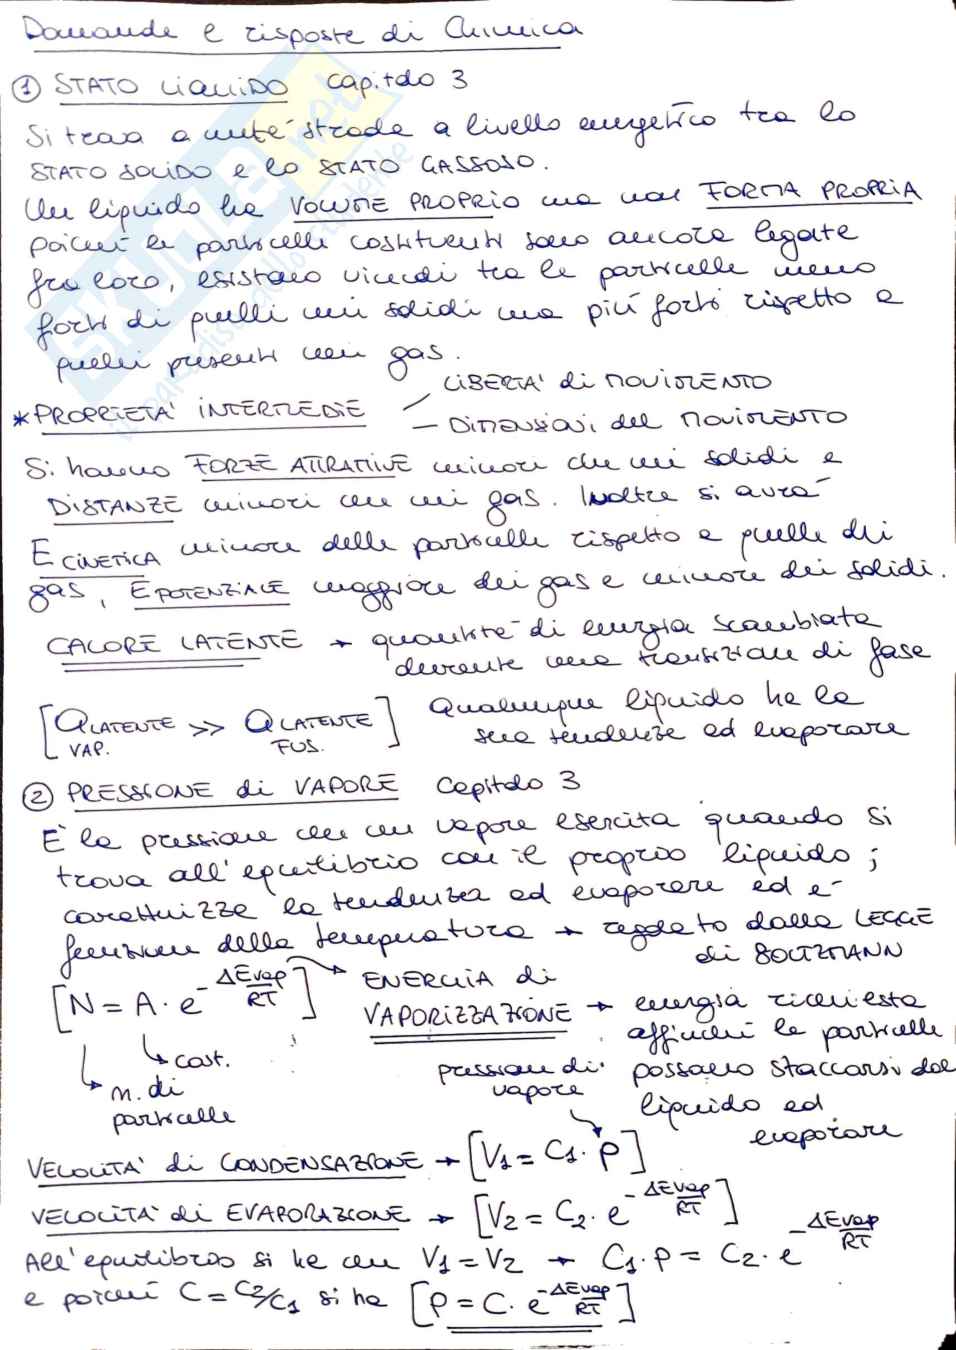 Domande e risposte di Chimica
① STATO LIQUIDO capitolo 3
Si trova a metà strada a livello energetico tra lo
STATO SOLIDO e lo STATO GASSOSO.
Un liquido ha VOLUME PROPRIO ma non FORMA PROPRIA
poiché le particelle costituenti sono ancora legate
fra loro, esistono vincoli tra le particelle meno
forti di quelli nei solidi ma più forti rispetto a
quelli presenti nei gas.
* PROPRIETA' INTERMEDIE
LIBERTA' di MOVIMENTO
— DIMENSIONI del MOVIMENTO
Si hanno FORZE ATTRATTIVE minori che nei solidi e
DISTANZE minori che nei gas. Inoltre si avrà
E CINETICA minore delle particelle rispetto a quelle dei
gas, E POTENZIALE maggiore dei gas e minore dei solidi.
CALORE LATENTE → quantità di energia scambiata
durante una transizione di fase
[Q LATENTE VAP. >> Q LATENTE FUS.]
Qualunque liquido ha la
sua tendenza ad evaporare
② PRESSIONE di VAPORE capitolo 3
E' la pressione che un vapore esercita quando si
trova all'equilibrio con il proprio liquido;
caratterizza la tendenza ad evaporare ed è
funzione della temperatura → regolato dalla LEGGE
di BOLTZMANN
[N = A · e^-ΔEvap/RT]
→ cost.
→ n. di
particelle
→ ENERGIA di
VAPORIZZAZIONE → energia richiesta
affinché le particelle
possano staccarsi dal
liquido ed
evaporare
pressione di
vapore
VELOCITA' di CONDENSAZIONE → [V1 = C1 · P]
VELOCITA' di EVAPORAZIONE → [V2 = C2 · e^-ΔEvap/RT]
All'equilibrio si ha che V1 = V2 → C1 · P = C2 · e^-ΔEvap/RT
e poiché C = C2/C1 si ha [P = C · e^-ΔEvap/RT]